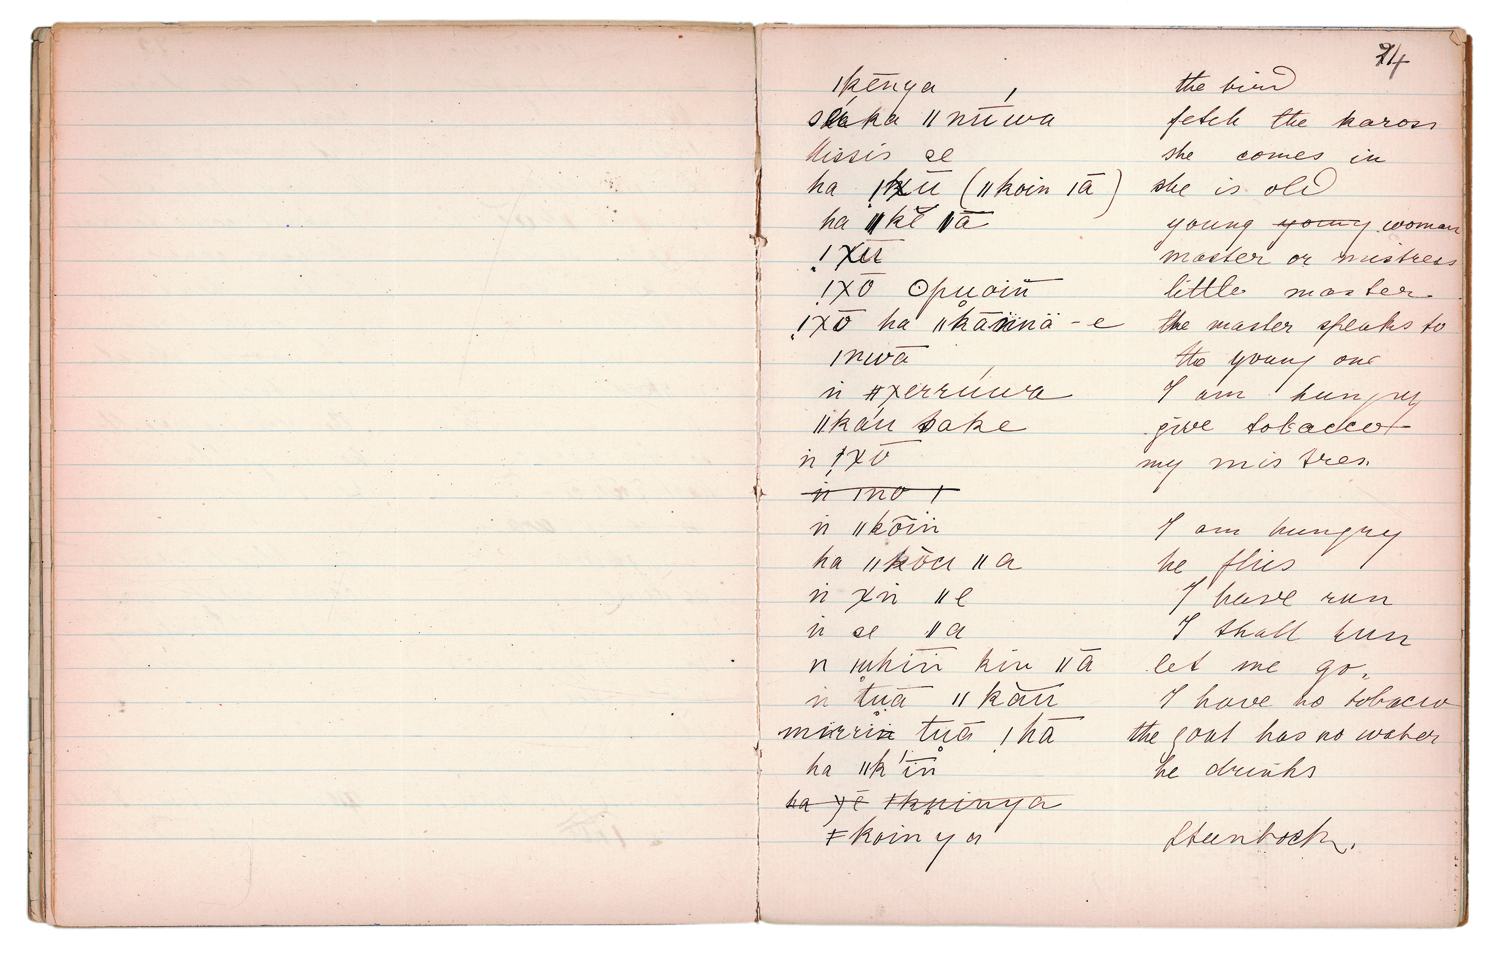 24
ǀkēnya the bird
ka ǁnúwa fetch the kaross
ǁissis se she comes in
ha ǃxū (ǁkoin ǀā) she is old
ha ǁkĕ ǁā young young woman
ǃxū master or mistress
ǃxō ʘpuoin̄ little master
ǃxō ha ǁkānnä-e the master speaks to
ǀnwā the young one
n̈ ǂxerrúwa I am hungry
ǁkáu̅ take give tobacco
n̈ ǃxō my mistres.
n̈ ǀno ǀ
n̈ ǁkōin̈ I am hungry
ha ǁkōu ǁa he flies
n̈ xn̈ ǁe I have run
n̈ se ǁa I shall run
n ǀuhin̈ kin ǁā let me go.
n̈ tuā ǁkāu̅ I have no tobacco
mirrin tuā ǃhā the goat has no water
ha ǁk'in̈ he drinks
ha xē ǀkuinya
ǂkoinya Steenbock.